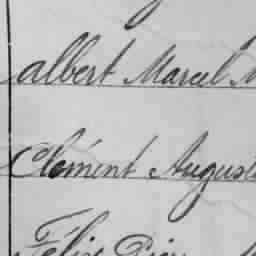 Albert Marcel M
Clément August
Félix